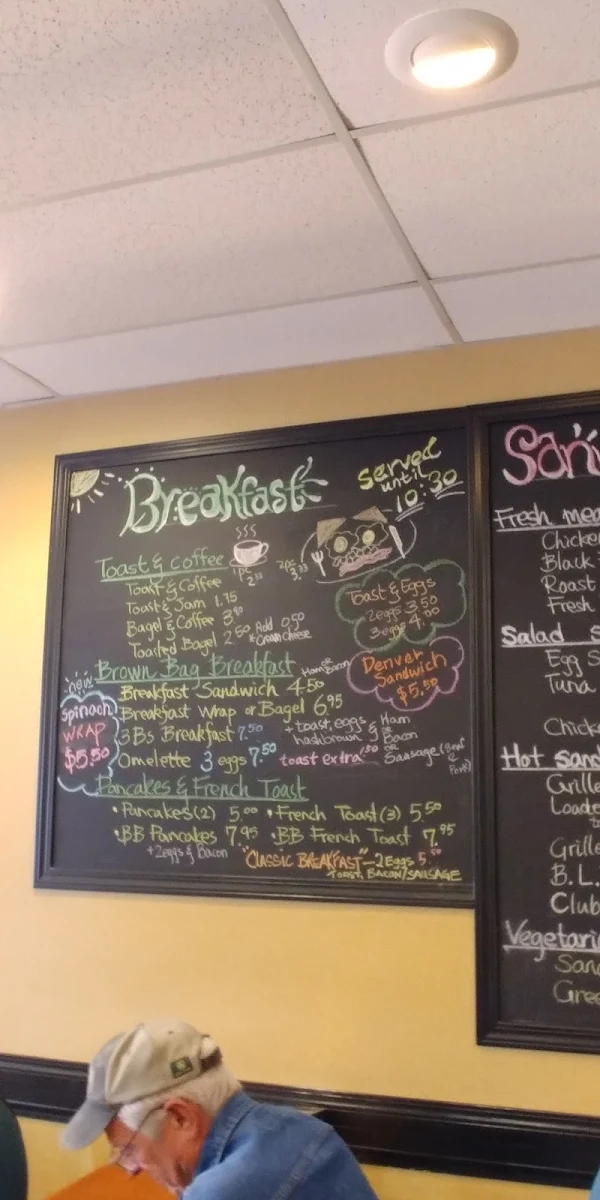 Breakfast
served
until
10:30
Toast & Coffee
Toast & Coffee
Toast & Jam 1.75
Bagel & Coffee 3.90
Toasted Bagel 2.50 Add 0.50
Cream Cheese
Toast & Eggs
2 eggs 3.50
3 eggs 4.00
Brown Bag Breakfast
Ham or Bacon
Breakfast Sandwich 4.50
Breakfast Wrap or Bagel 6.95
3Bs Breakfast 7.50 + toast, eggs &
hashbrown
Ham
or
Bacon
or
Sausage
Omelette 3 eggs 7.50 toast extra 1.50
Denver
Sandwich
$5.50
new
Spinach
WRAP
$5.50
Pancakes & French Toast
• Pancakes (2) 5.00 • French Toast (3) 5.50
• BB Pancakes 7.95 • BB French Toast 7.95
+ 2 eggs & Bacon
"CLASSIC BREAKFAST" — 2 Eggs
TOAST, BACON/SAUSAGE
San
Fresh mea
Chicke
Black
Roast
Fresh
Salad S
Egg S
Tuna
Chick
Hot sand
Grille
Loade
Grille
B.L.
Club
Vegetari
San
Gree